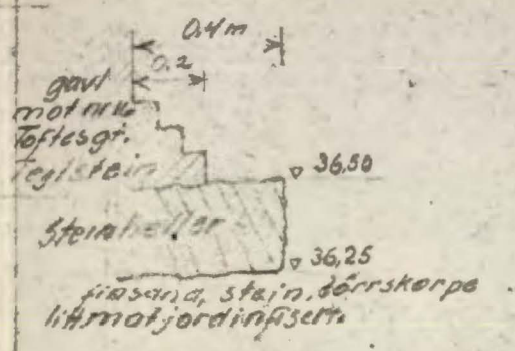 0.4m
0.2
gavl
mot nr 11.
Toftesgt.
Teglstein
Steinheller
36,50
36,25
finsand, stein, tørrskorpe
litt matjord infisert.